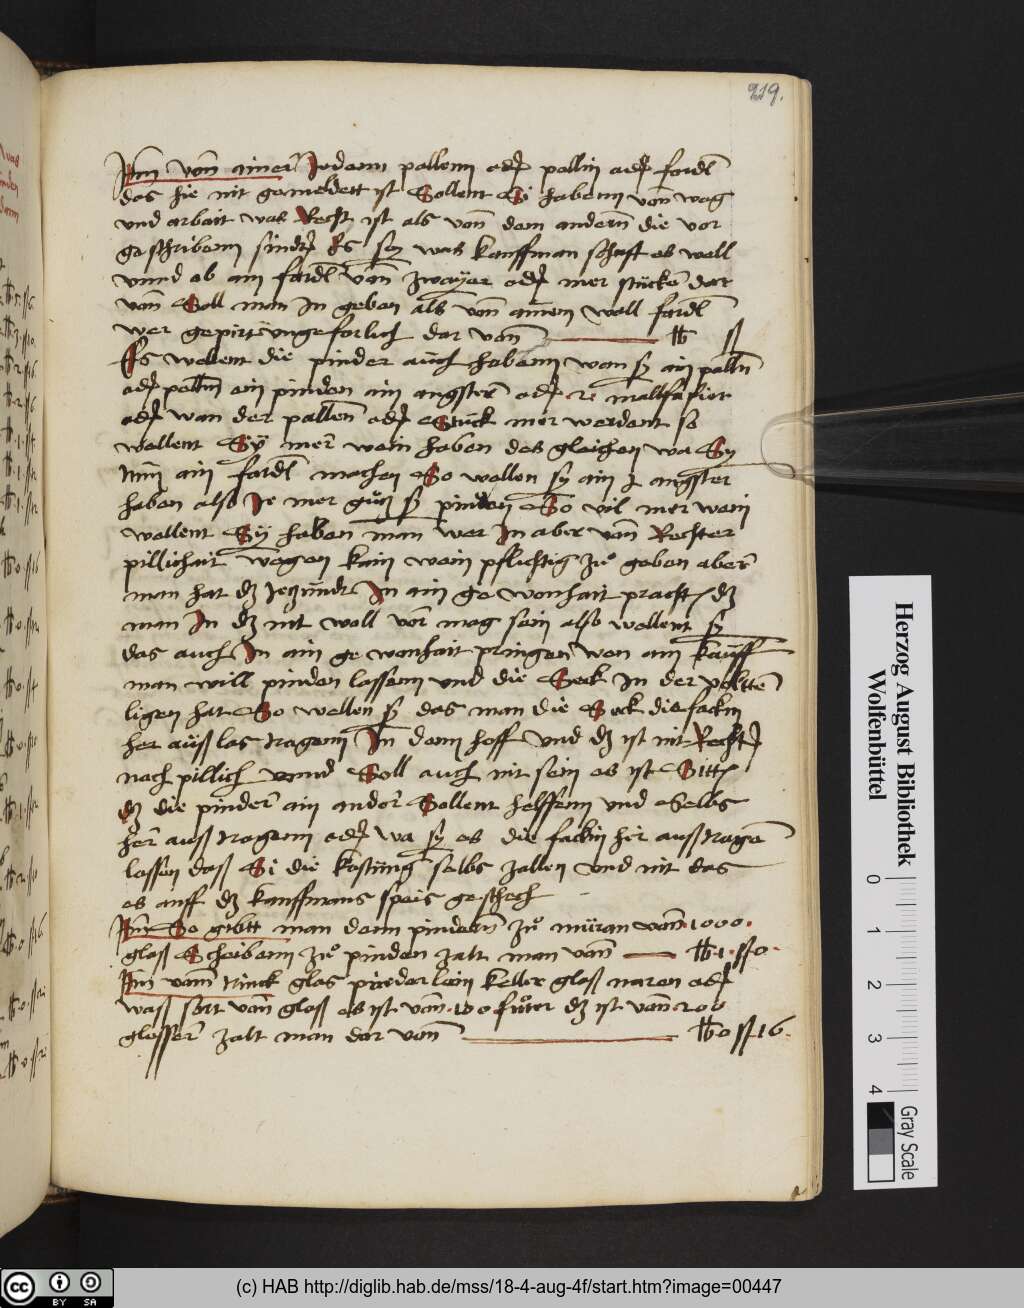 219.
Itm von ainer Jedem pallenn oder pallin oder fardl
das hie nit gemeldett ist Sollent Si habenn von wag
und arbait was Recht ist als von dem andern die vor
geschribenn sindt Es sey was kauffmanschaft es well
unnd ob ain fardl vonn zwayer oder mer stücken dar
von Soll man In geben als von ainem woll fardl
wer gepirt ungeforlich dar von lb ß
Es wellent die pinder auch habenn wan sy ain palln
oder pallin ein pinden ain angster oder 2 mallfasier
oder wan der pallen oder Stuck mer werdent so
wellent Sÿ mer wein haben des gleichen wa Sy
Inn ain fardl machen So wellen sy ain angster
haben also Je mer guot sy pinden So vil mer wein
wellent Sÿ haben man wer In aber von Rechter
pillichait wegen kain wein pflichtig zuo geben aber
man hat dz Jetzundt In ain gewonhait pracht dz
man In dz nit woll vor mag sein also wellent sy
das auch In ain gewonhait pringen wen ain kauff
man will pinden lassenn und die Seck In der
ligen hat So wellen sy das man die Seck die fackin
her auß las tragenn In denn hoff und dz ist nit Recht
nach pillich unnd Soll auch nit sein es ist Sitt
dz die pinder ain ander Sollent helffenn und Selbs
her auß tragenn oder wa sy es die fackin her auß tragen
lassen daß Si die kostung selbs zallen und nit das
es auff dz kauffmans speis geschech
Itm So gibtt man denn pindern zuo müran vonn 1000.
glaß Scheibenn zuo pinden zalt man vonn lb 1. ß 0.
Itm vonn trinck glas pinderlein keller glaß oder
was sort von glaß es ist von 100 fuoter dz ist von 200
glesser zalt man dar von lb 0 ß 16.
Herzog August Bibliothek
Wolfenbüttel
0 1 2 3 4
Gray Scale
cc BY SA
(c) HAB http://diglib.hab.de/mss/18-4-aug-4f/start.htm?image=00447